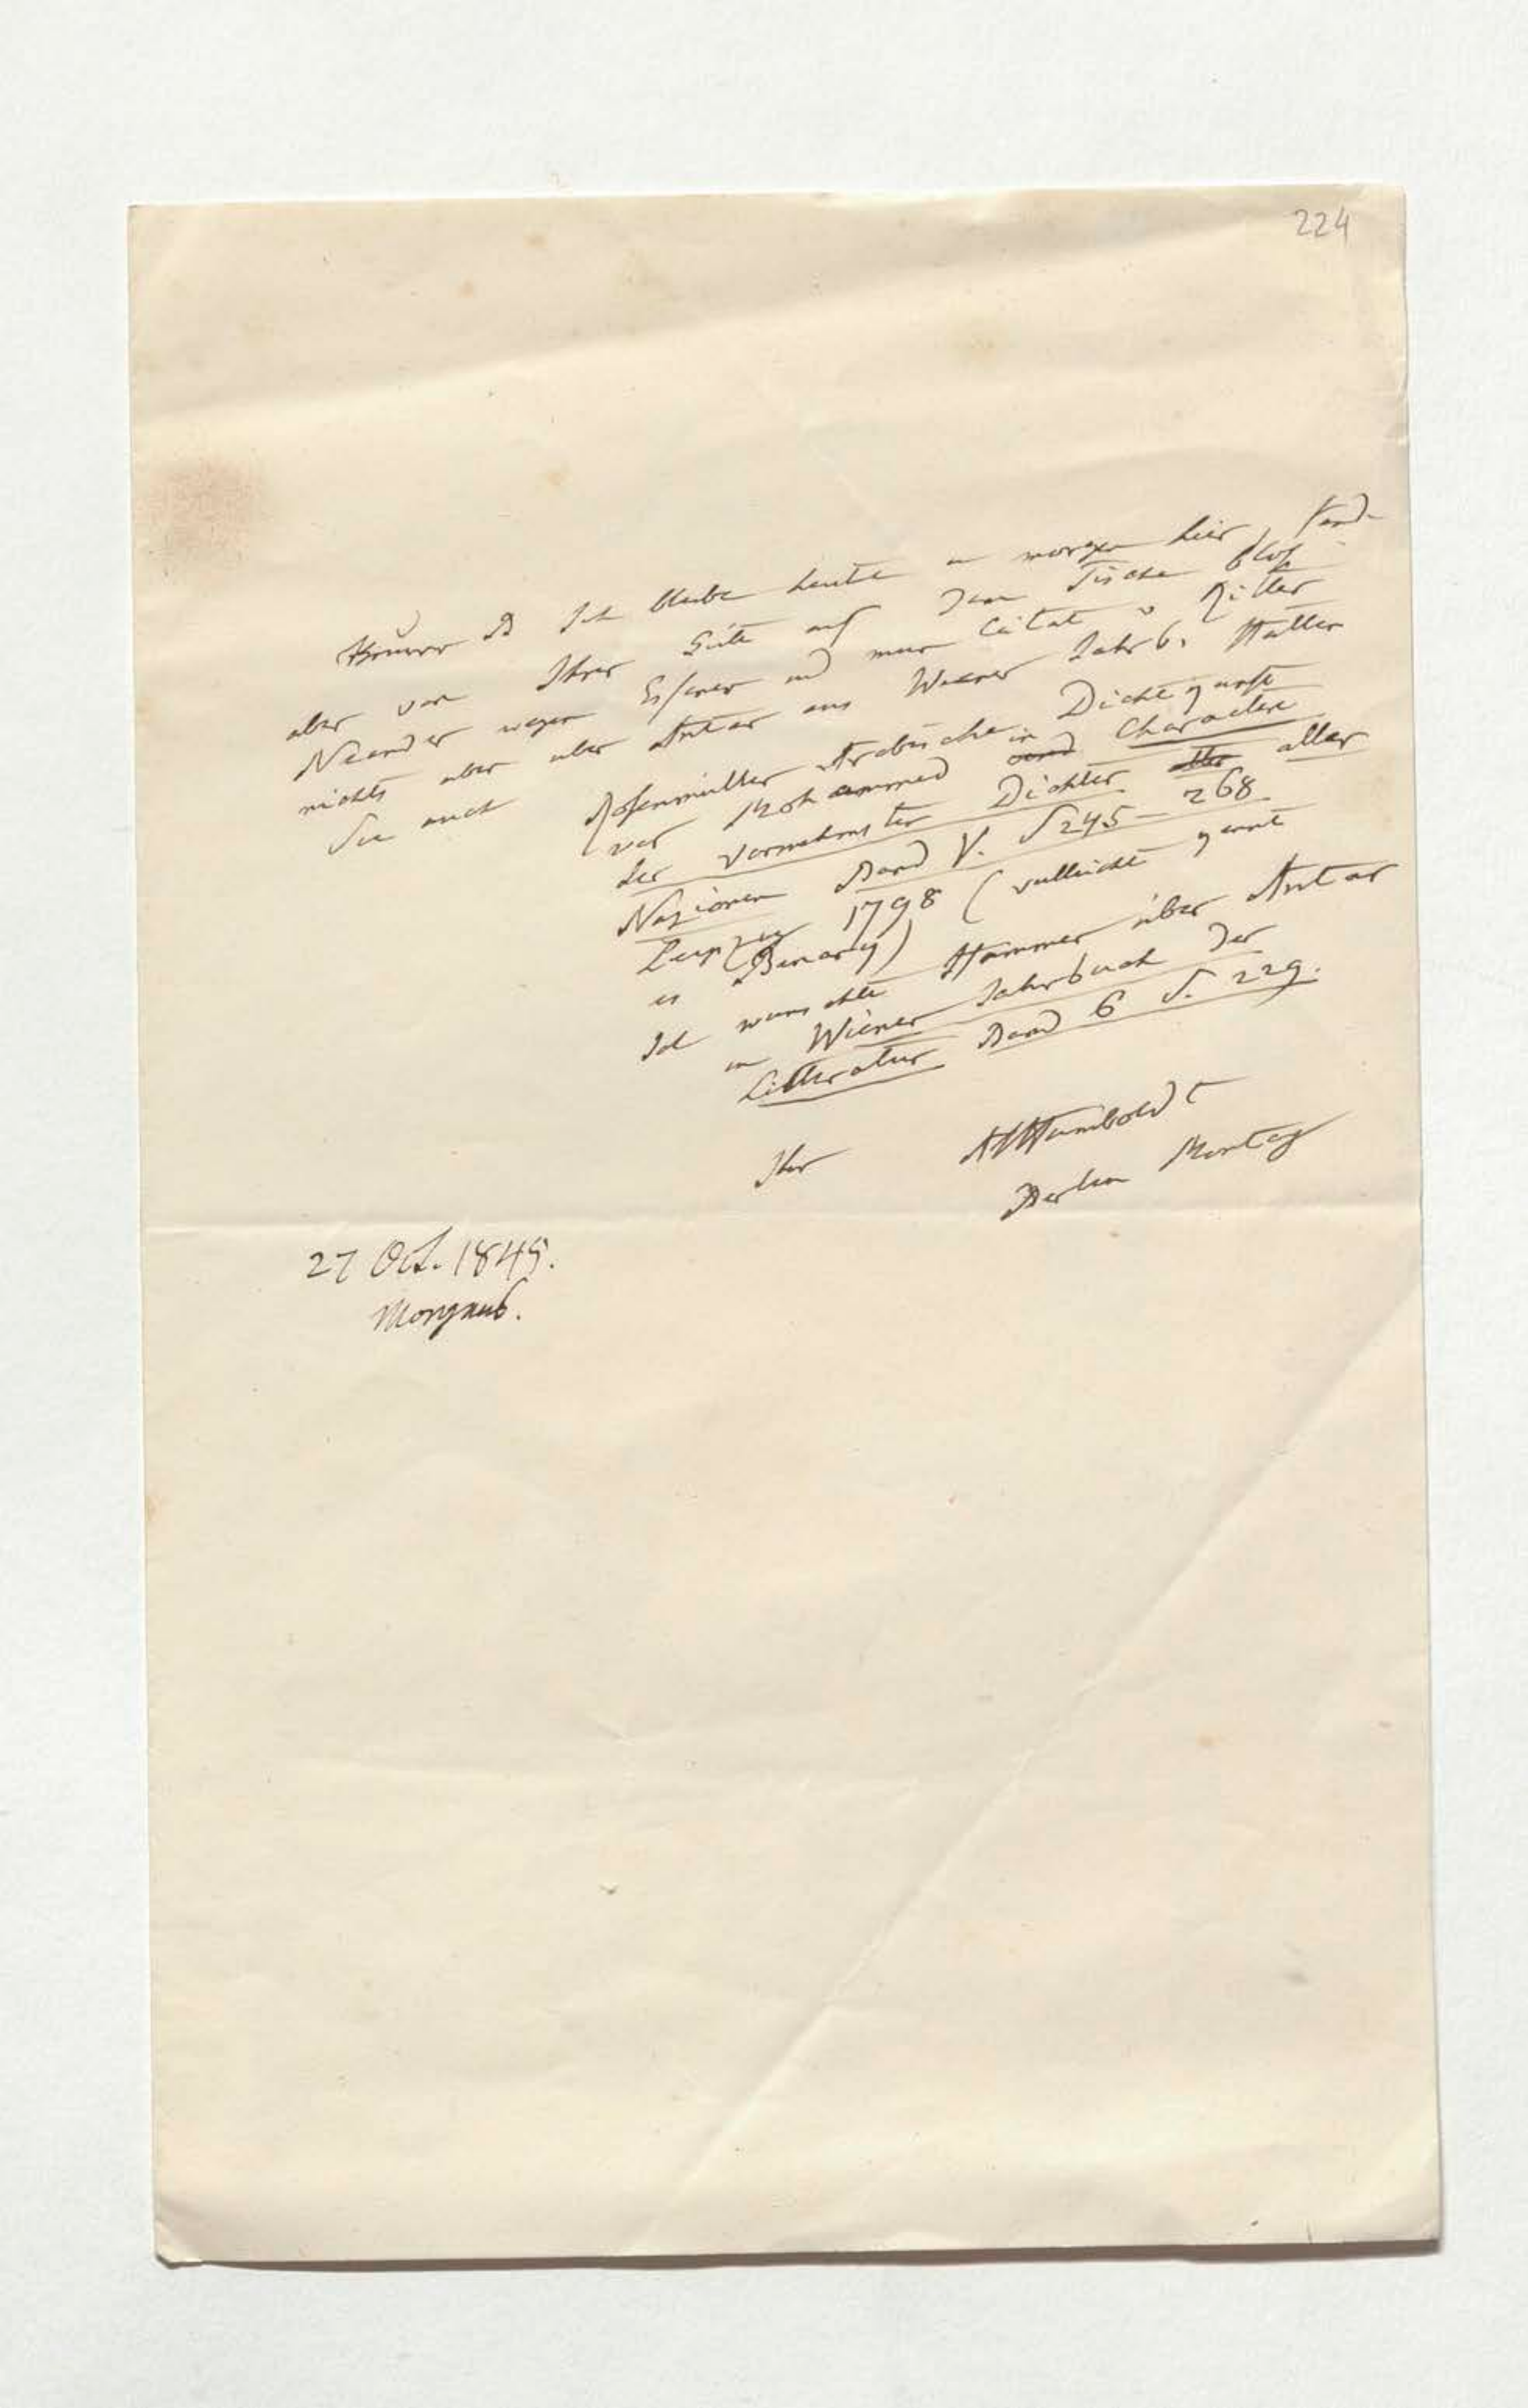 224
Ich bleibe heute u morgen hier, fand
aber von Ihrer Güte auf dem Tische bloß
Neander wegen und mein Citat v Ritter
nichts aber über Antar aus Wiener Jahrb. Hätten
Sie auch Rosenmüller Arabische Dichtkunst
vor Mohammed in Charactere
der vornehmsten Dichter aller
Nazionen Band V. S 245–268
Leipzig 1798 (vielleicht
es Benary)
Ich wünschte Hammer über Antar
in Wiener Jahrbuch der
Litteratur Band 6 S. 229.
Ihr AVHumboldt
Berlin Montag
27 Oct. 1845.
Morgens.